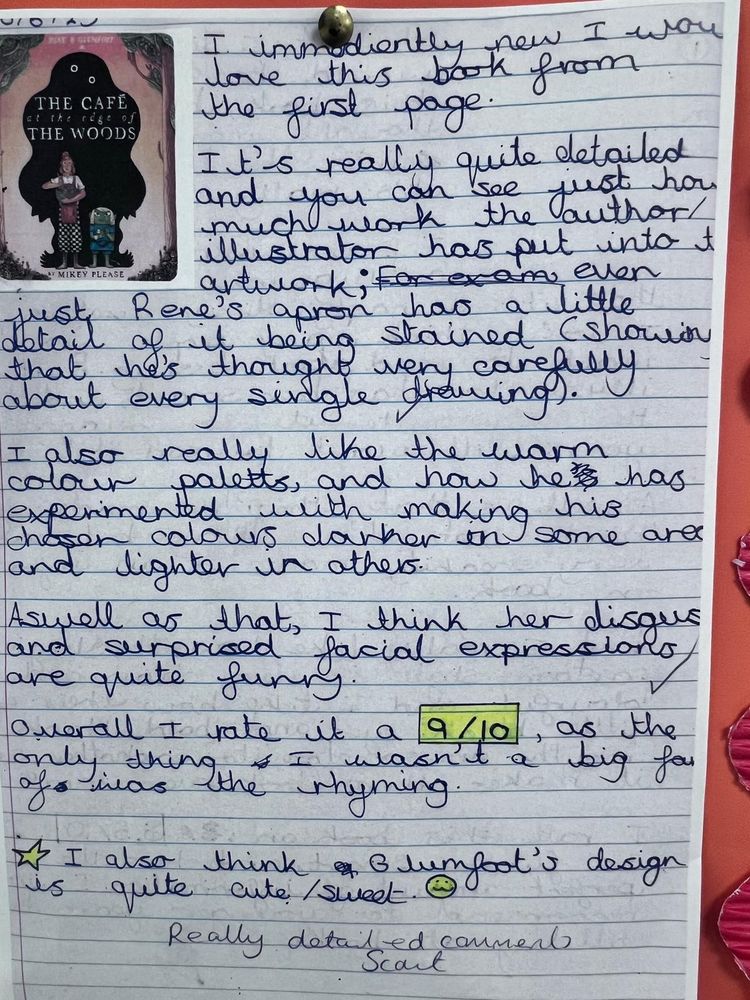 I immediently new I wou
love this book from
the first page.
THE CAFÉ
at the edge of
THE WOODS
BY MIKEY PLEASE
It's really quite detailed
and you can see just how
much work the author/
illustrator has put into t
artwork; For exam even
just Rene's apron has a little
detail of it being stained (showin
that he's thought very carefully
about every single drawing).
I also really like the warm
colour paletts, and how he has
experimented with making his
chosen colours darker in some area
and lighter in others.
Aswell as that, I think her disgus
and surprised facial expressions
are quite funny.
Overall I rate it a 9/10, as the
only thing I wasn't a big fa
of was the rhyming.
I also think Glumfoot's design
is quite cute/sweet.
Really detailed comments